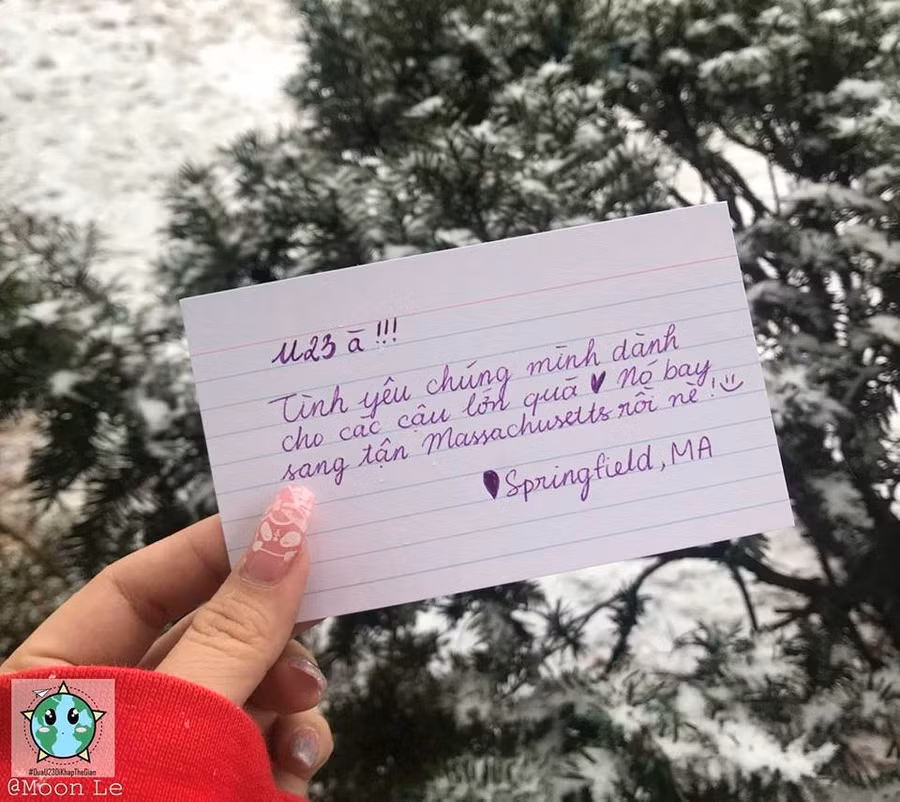 U23 à !!!
Tình yêu chúng mình dành
cho các cậu lớn quá ♥ Nó bay
sang tận Massachusetts rồi nè !
Springfield, MA
#DuaU23DiKhapTheGian
@Moon Le